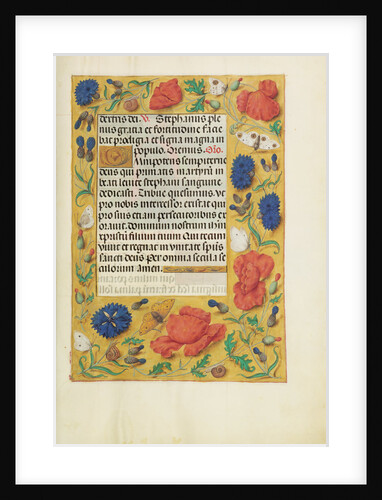 dextris dei. V. Stephanus ple
nus gratia et fortitudine facie
bat prodigia et signa magna in
populo. Oremus. Oro.
Omnipotens sempiterne
deus qui primitias martyrū in
beati leuite stephani sanguine
dedicasti. Tribue quesumus. ut
pro nobis intercessor existat qui
pro suis etiam persecutoribus ex
orauit. dominum nostrum ihm
xpristū filium tuum Qui tecum
viuit et regnat in vnitate spūs
sancti deus Per omnia secula se
culorum amen.